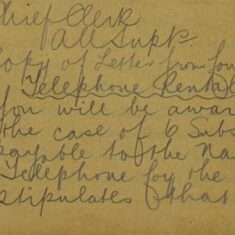 Chief Clerk
All Supts.
Copy of Letter from
Telephone Rental
You will be awar
the case of 6 Subs
payable to the Na
Telephone for the
stipulates that